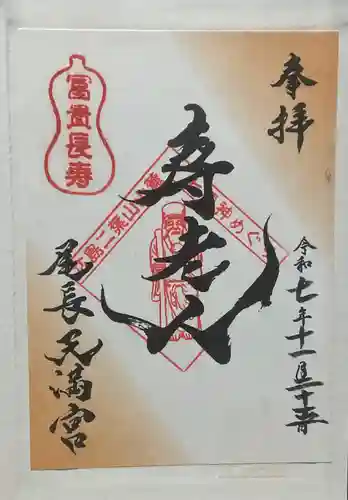 奉拝
令和七年十一月二十五日
寿老人
富貴長寿
二葉山
神めぐり
尾長天満宮